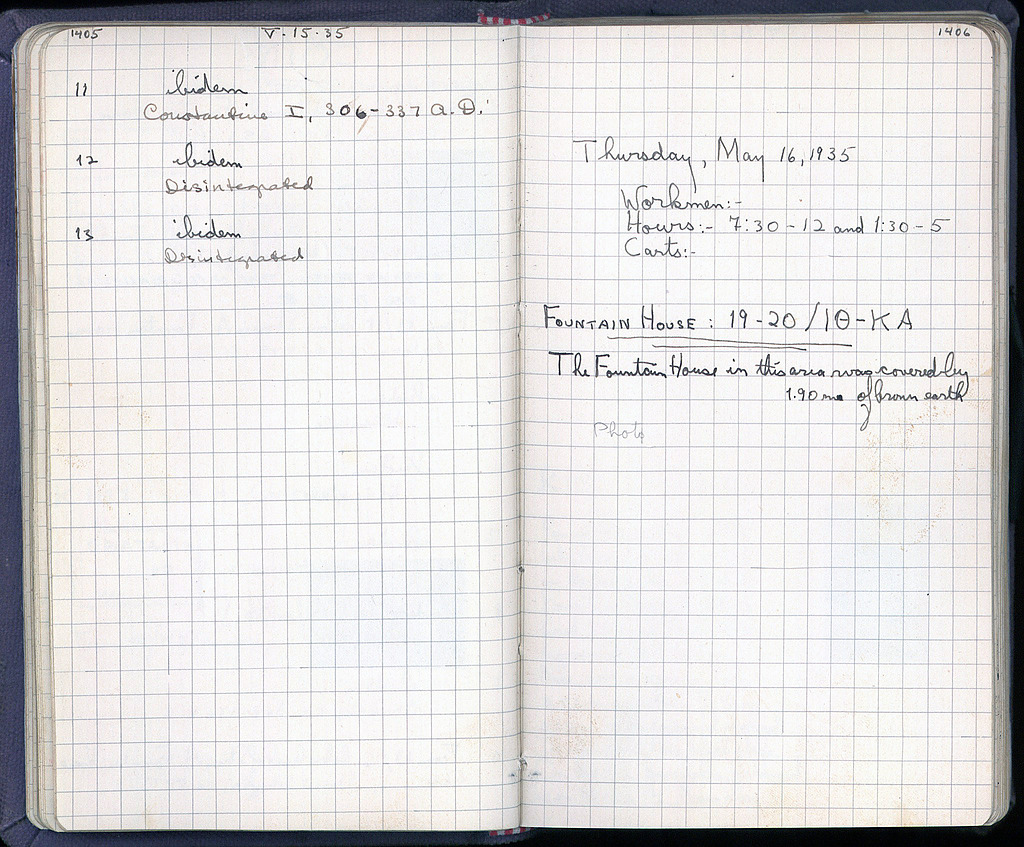 1405 V-15-35
11 ibidem
Constantine I, 306-337 A.D.
12 ibidem
Disintegrated
13 ibidem
Disintegrated
1406
Thursday, May 16, 1935
Workmen:-
Hours:- 7:30-12 and 1:30-5
Carts:-
FOUNTAIN HOUSE: 19-20/ΙΘ-ΚΑ
The Fountain House in this area was covered by
1.90 m. of brown earth
Photo